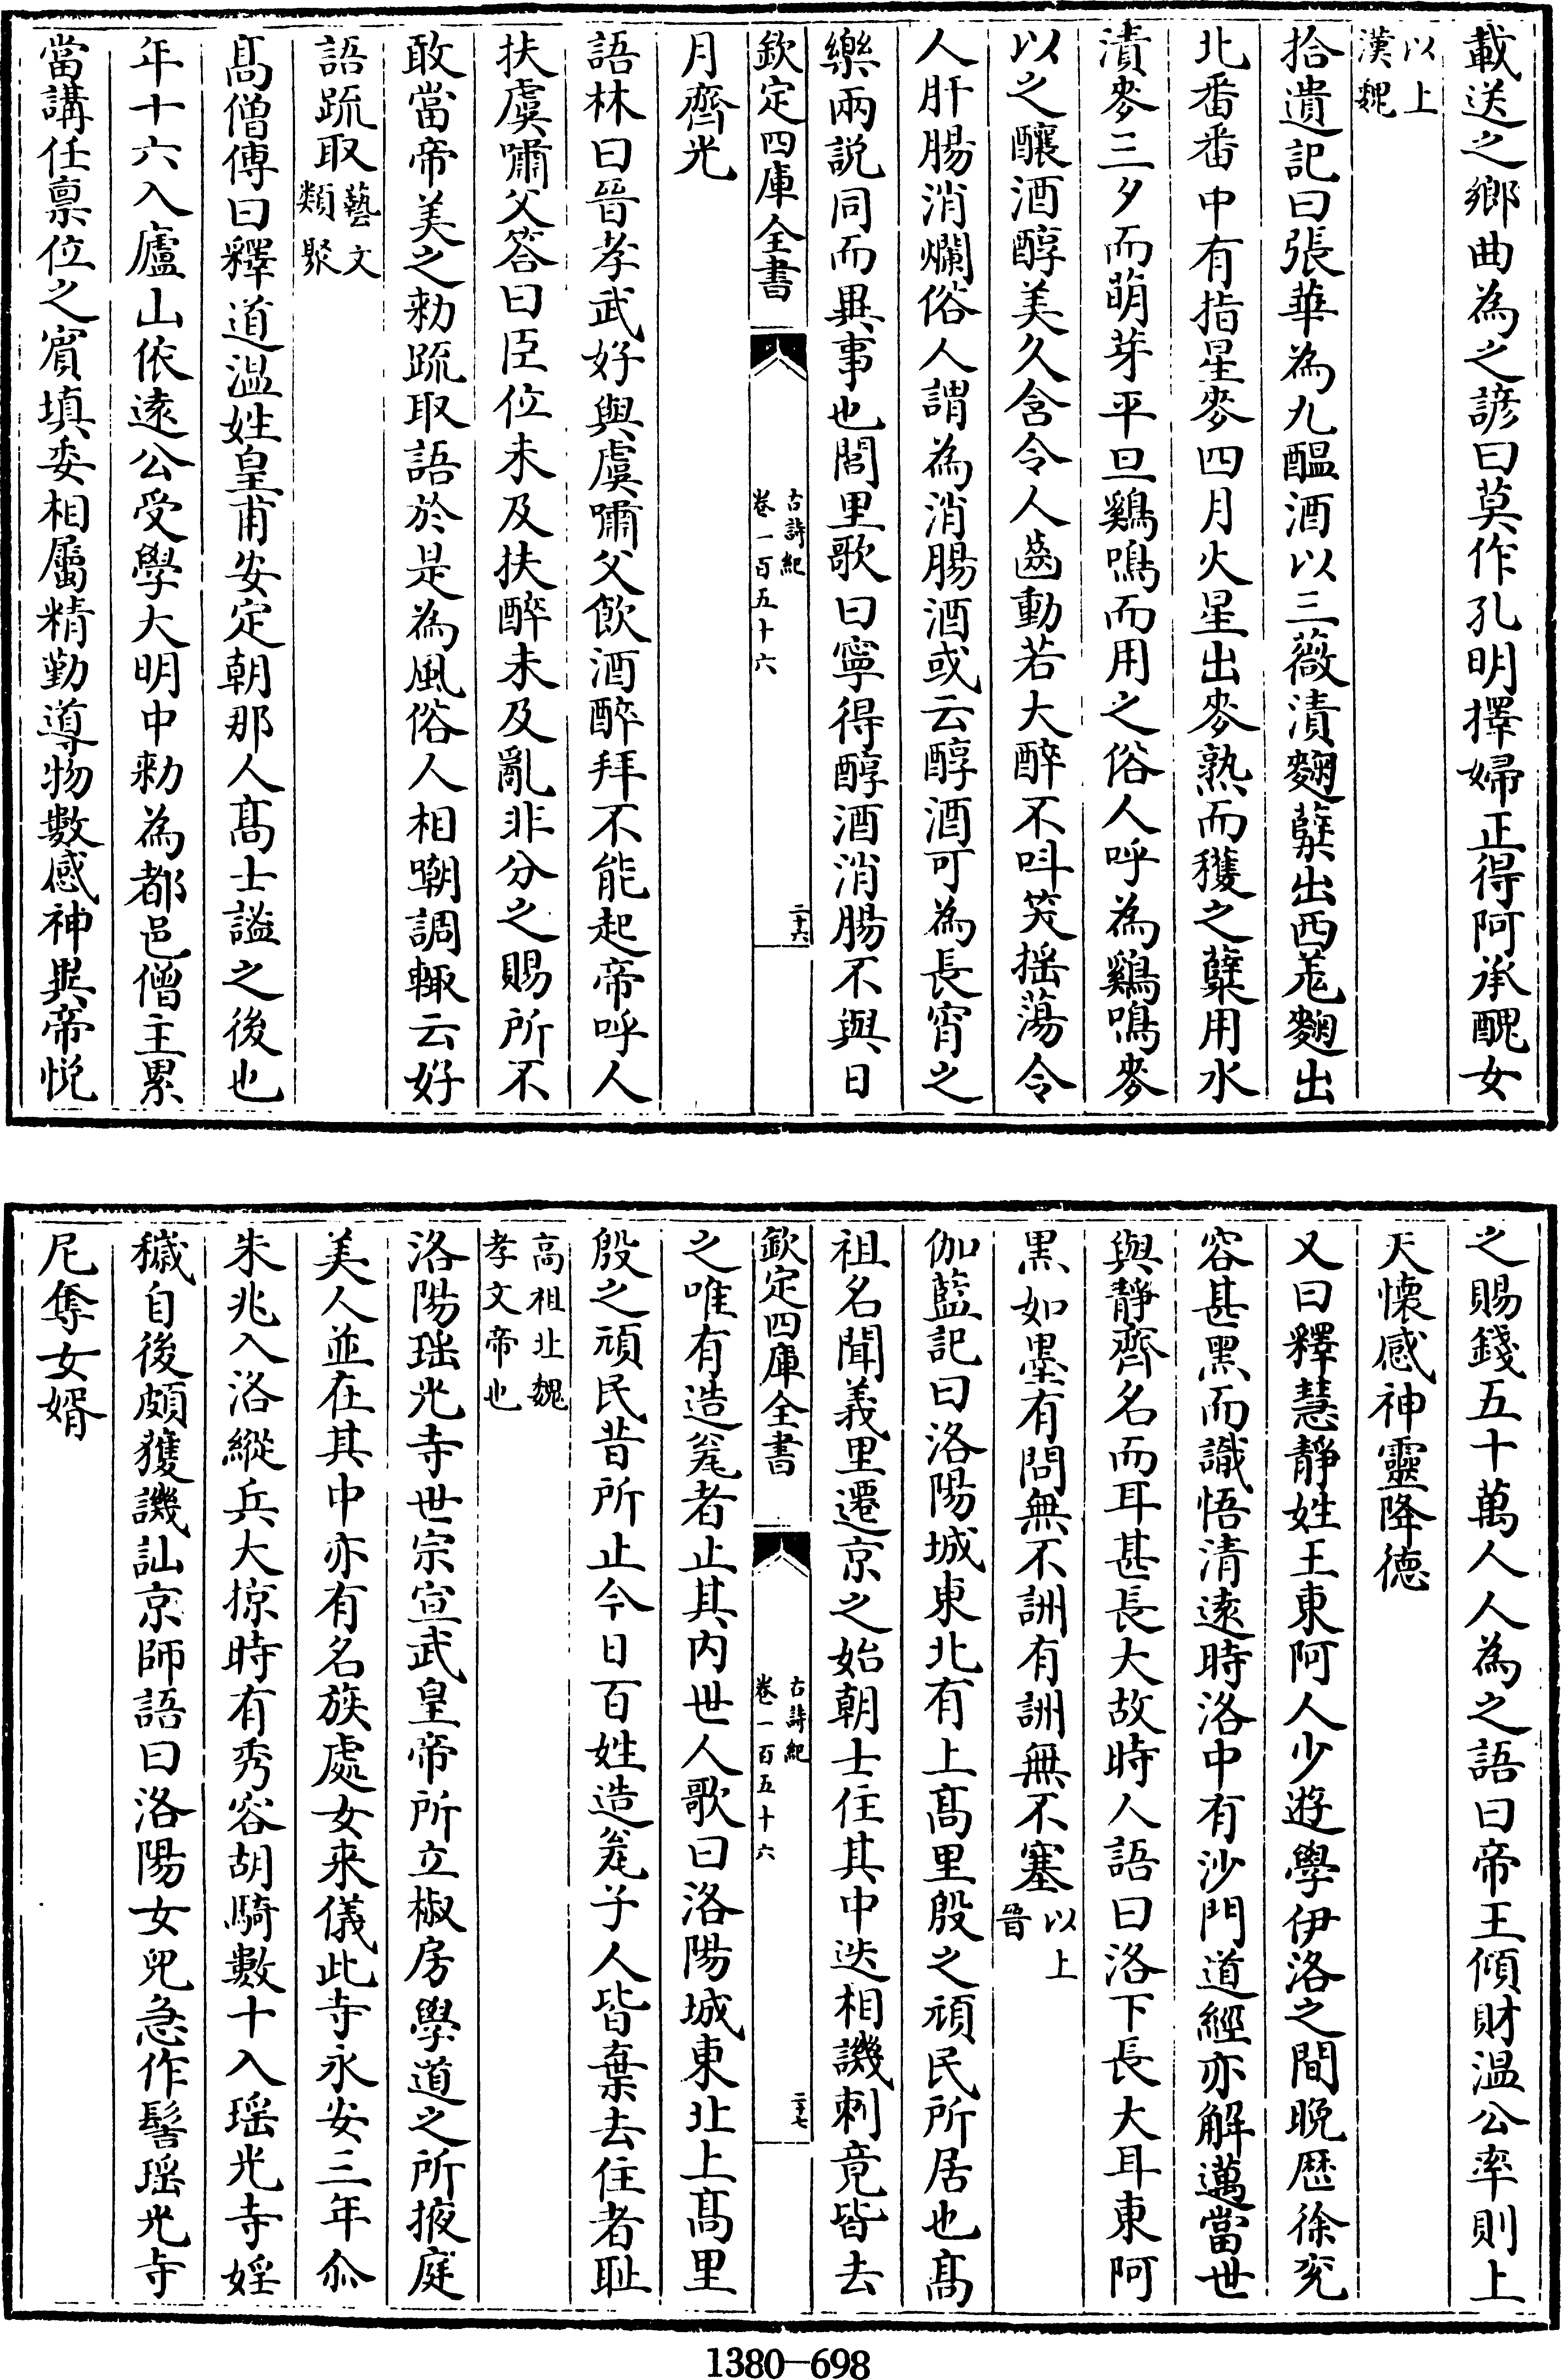 載送之鄉曲為之諺曰莫作孔明擇婦正得阿承醜女
以上
漢魏
拾遺記曰張華為九醖酒以三薇漬麴蘖出西羌麴出
北番番中有指星麥四月火星出麥熟而穫之蘖用水
漬麥三夕而萌芽平旦鷄鳴而用之俗人呼為鷄鳴麥
以之釀酒醇美久含令人齒動若大醉不呌笑揺蕩令
人肝腸消爛俗人謂為消腸酒或云醇酒可為長宵之
樂兩說同而異事也閭里歌曰寧得醇酒消腸不與日
欽定四庫全書
古詩紀
卷一百五十六
二十六
月齊光
語林曰晉孝武好與虞嘯父飲酒醉拜不能起帝呼人
扶虞嘯父答曰臣位未及扶醉未及亂非分之賜所不
敢當帝美之勑疏取語於是為風俗人相嘲調輙云好
語疏取藝文
類聚
髙僧傳曰釋道温姓皇甫安定朝那人髙士謐之後也
年十六入廬山依逺公受學大明中勑為都邑僧主累
當講任禀位之賔填委相屬精勤導物數感神異帝悦
之賜錢五十萬人人為之語曰帝王傾財温公率則上
天懐感神靈降徳
又曰釋慧靜姓王東阿人少遊學伊洛之間晩歴徐兖
容甚黑而識悟清逺時洛中有沙門道經亦解邁當世
與靜齊名而耳甚長大故時人語曰洛下長大耳東阿
黒如墨有問無不詶有詶無不塞以上
晉
伽藍記曰洛陽城東北有上髙里殷之頑民所居也髙
祖名聞義里遷京之始朝士住其中迭相譏刺竟皆去
欽定四庫全書
古詩紀
卷一百五十六
二十七
之唯有造瓮者止其内世人歌曰洛陽城東北上髙里
殷之頑民昔所止今日百姓造瓮子人皆棄去住者耻
高祖北魏
孝文帝也
洛陽瑶光寺世宗宣武皇帝所立椒房學道之所掖庭
美人並在其中亦有名族處女来儀此寺永安三年尒
朱兆入洛縱兵大掠時有秀容胡騎數十入瑶光寺婬
穢自後頗獲譏訕京師語曰洛陽女兒急作髻瑶光寺
尼奪女婿
1380—698